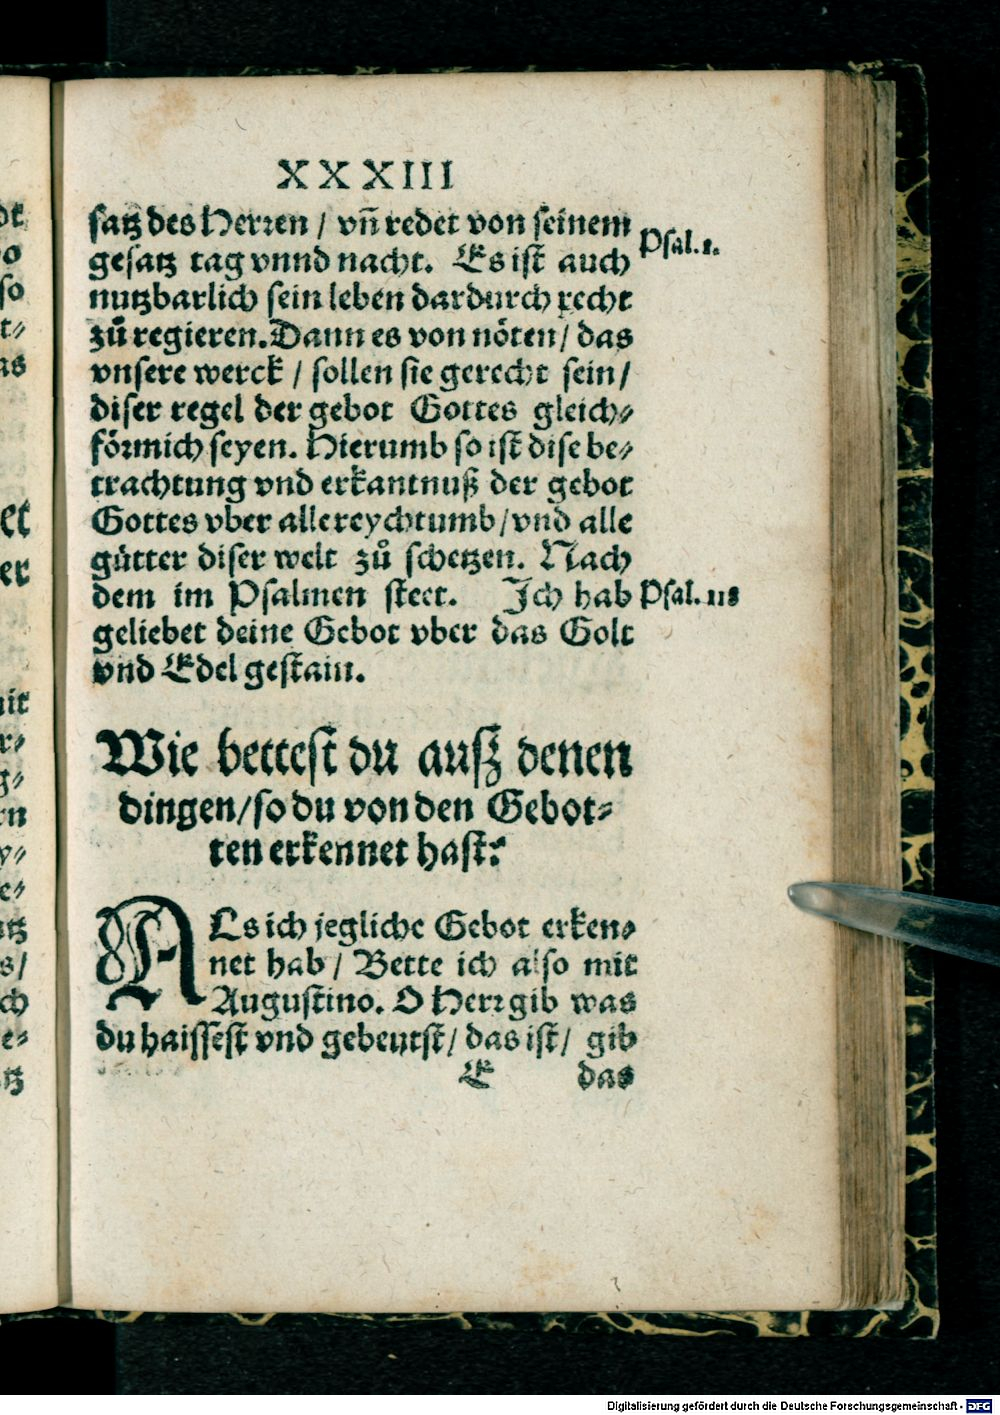 XXXIII
satz des Herren / vn̄ redet von seinem
Psal. 1.
gesatz tag vnnd nacht. Es ist auch
nutzbarlich sein leben dardurch recht
zů regieren. Dann es von nöten / das
vnsere werck / sollen sie gerecht sein /
diser regel der gebot Gottes gleich⸗
förmich seyen. Hierumb so ist dise be⸗
trachtung vnd erkantnuß der gebot
Gottes vber alle reychtumb / vnd alle
gütter diser welt zů schetzen. Nach
dem im Psalmen steet. Ich hab
Psal. 118
geliebet deine Gebot vber das Golt
vnd Edel gestain.
Wie bettest du auß denen
dingen / so du von den Gebot⸗
ten erkennet hast?
ALs ich jegliche Gebot erken⸗
net hab / Bette ich also mit
Augustino. O Herr gib was
du haissest vnd gebeutst / das ist / gib
E das
Digitalisierung gefördert durch die Deutsche Forschungsgemeinschaft - DFG